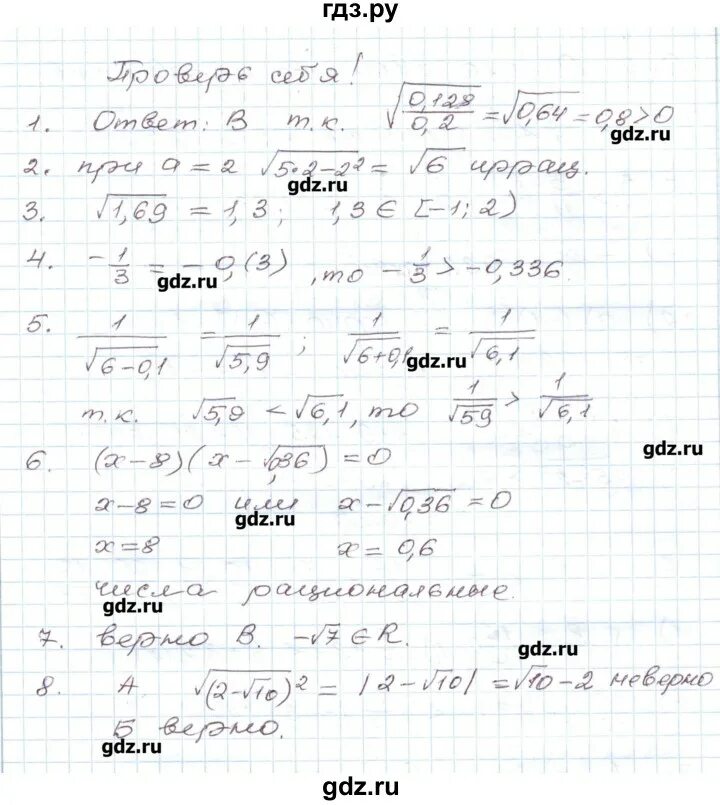 гдз.ру
Проверь себя!
1. Ответ: В т.к. √(0,128/0,2) = √0,64 = 0,8 > 0
gdz.ru
2. при а = 2 √(5·2−2²) = √6 иррац.
gdz.ru
3. √1,69 = 1,3; 1,3 ∈ [−1; 2)
4. −1/3 = −0,(3), то −1/3 > −0,336
gdz.ru
5. 1/√(6−0,1) = 1/√5,9; 1/√(6+0,1) = 1/√6,1
gdz.ru
gdz.ru
т.к. √5,9 < √6,1, то 1/√59 > 1/√6,1
gdz.ru
6. (x−8)(x−√0,36) = 0
x−8=0 или x−√0,36 = 0
gdz.ru
x=8 x = 0,6
числа рациональные.
gdz.ru
7. верно В. −√7 ∈ R.
gdz.ru
8. А √(2−√10)² = |2−√10| = √10−2 неверно
Б верно.
gdz.ru
gdz.ru